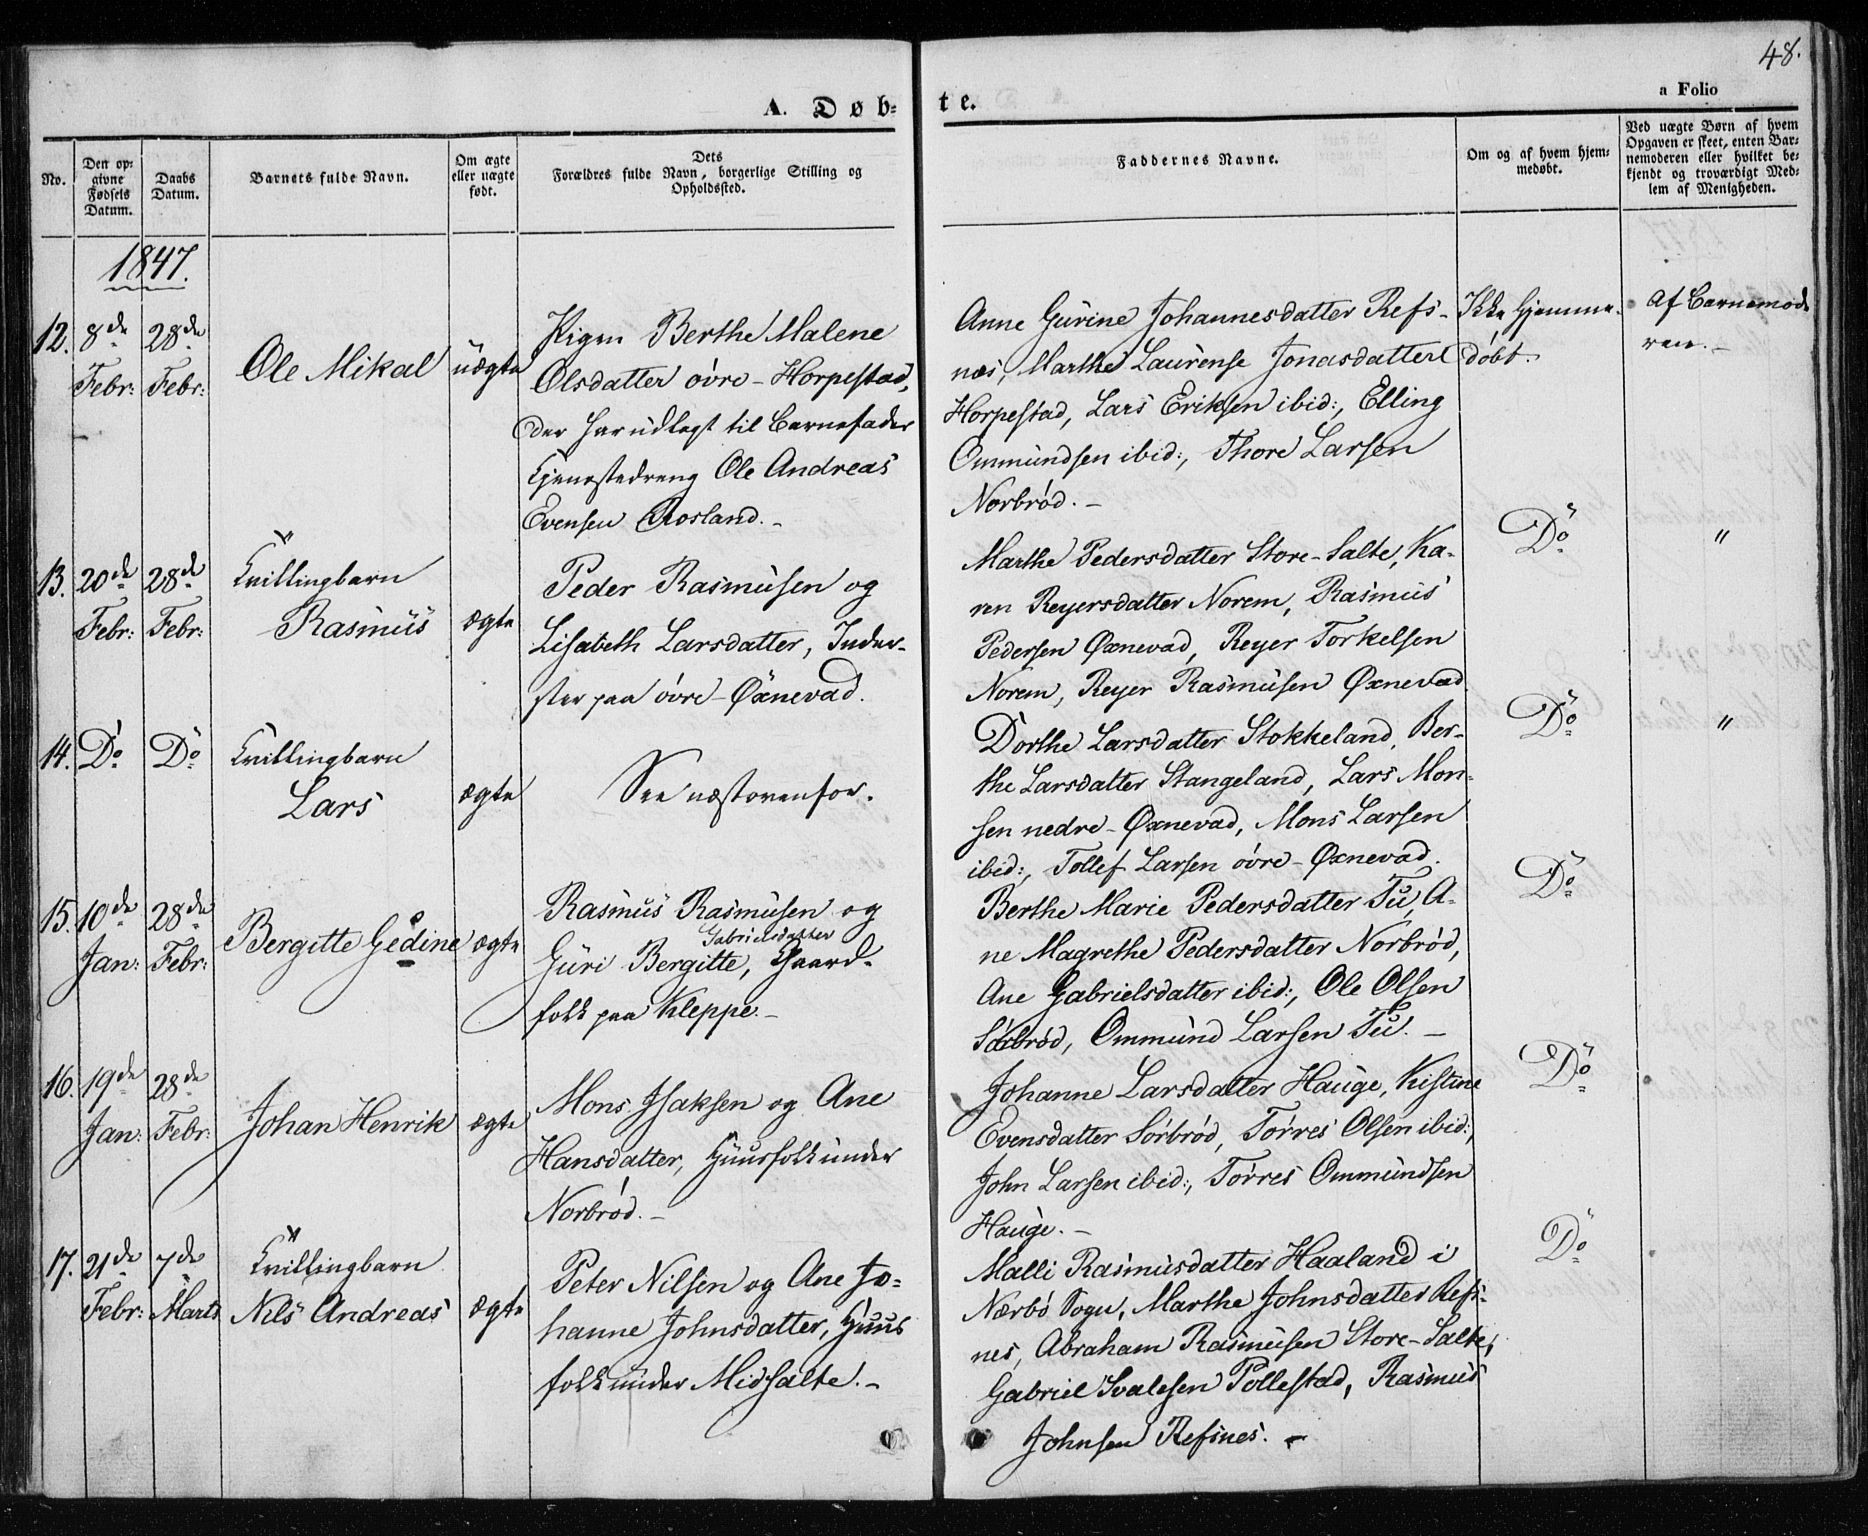 48.
A. Døb-
te.
a Folio
No.
Den op-
givne
Fødsels
Datum.
Daabs
Datum.
Barnets fulde Navn.
Om ægte
eller uægte
født.
Dets
Forældres fulde Navn, borgerlige Stilling og
Opholdssted.
Faddernes Navne.
Om og af hvem hjem-
medøbt.
Ved uægte Børn af hvem
Opgaven er skeet, enten Bar-
nemoderen eller hvilket be-
kjendt og troværdigt Med-
lem af Menigheden.
1847.
12.
8de
Febr:
28de
Febr:
Ole Mikal
uægte
Pigen Berthe Malene
Olsdatter øvre-Horpestad,
der har udlagt til Barnefader
Tjenestedreng Ole Andreas
Evensen Rosland.-
Anne Gurine Johannesdatter Refs-
næs, Marthe Laurense Jonasdatter
Horpestad, Lars Eriksen ibid:, Elling
Ommundsen ibid:, Thore Larsen
Norbrød.-
Ikke hjemme-
døbt.
Af Barnemode
ren.-
13.
20de
Febr:
28de
Febr:
Tvillingbarn
Rasmus
ægte
Peder Rasmusen og
Lisabeth Larsdatter, Inder-
ster paa øvre-Øxnevad.
Marthe Pedersdatter Store-Salte, Ka-
ren Reyersdatter Norem, Rasmus
Pedersen Øxnevad, Reyer Torkelsen
Norem, Reyer Rasmusen Øxnevad
Do
"
14.
Do
Do
Tvillingbarn
Lars
ægte
See næstovenfor.
Dorthe Larsdatter Stokkeland, Ber-
the Larsdatter Stangeland, Lars Mon-
sen nedre-Øxnevad, Mons Larsen
ibid:, Tollef Larsen øvre-Øxnevad.
Do
"
15.
10de
Jan:
28de
Febr:
Bergitte Gedine
ægte
Rasmus Rasmusen og
Gabrielsdatter
Guri Bergitte, Gaard-
folk paa Kleppe.-
Berthe Marie Pedersdatter Tu, A-
ne Magrethe Pedersdatter Norbrød,
Ane Gabrielsdatter ibid:, Ole Olsen
Sørbrød, Ommund Larsen Tu.-
Do
16.
19de
Jan:
28de
Febr:
Johan Henrik
ægte
Mons Isaksen og Ane
Hansdatter, Huusfolk under
Norbrød.-
Johanne Larsdatter Hauge, Kistine
Evensdatter Sørbrød, Tørres Olsen ibid:,
John Larsen ibid:, Tørres Ommundsen
Hauge.-
Do
17.
21de
Febr:
7de
Marts
Tvillingbarn
Nils Andreas
ægte
Peter Nilsen og Ane Jo-
hanne Johnsdatter, Huus
folk under Midsalte.-
Malli Rasmusdatter Haaland i
Nærbø Sogn, Marthe Johnsdatter Refs-
nes, Abraham Rasmusen Store-Salte,
Gabriel Svalesen Pollestad, Rasmus
Johnsen Refsnes.-
Do